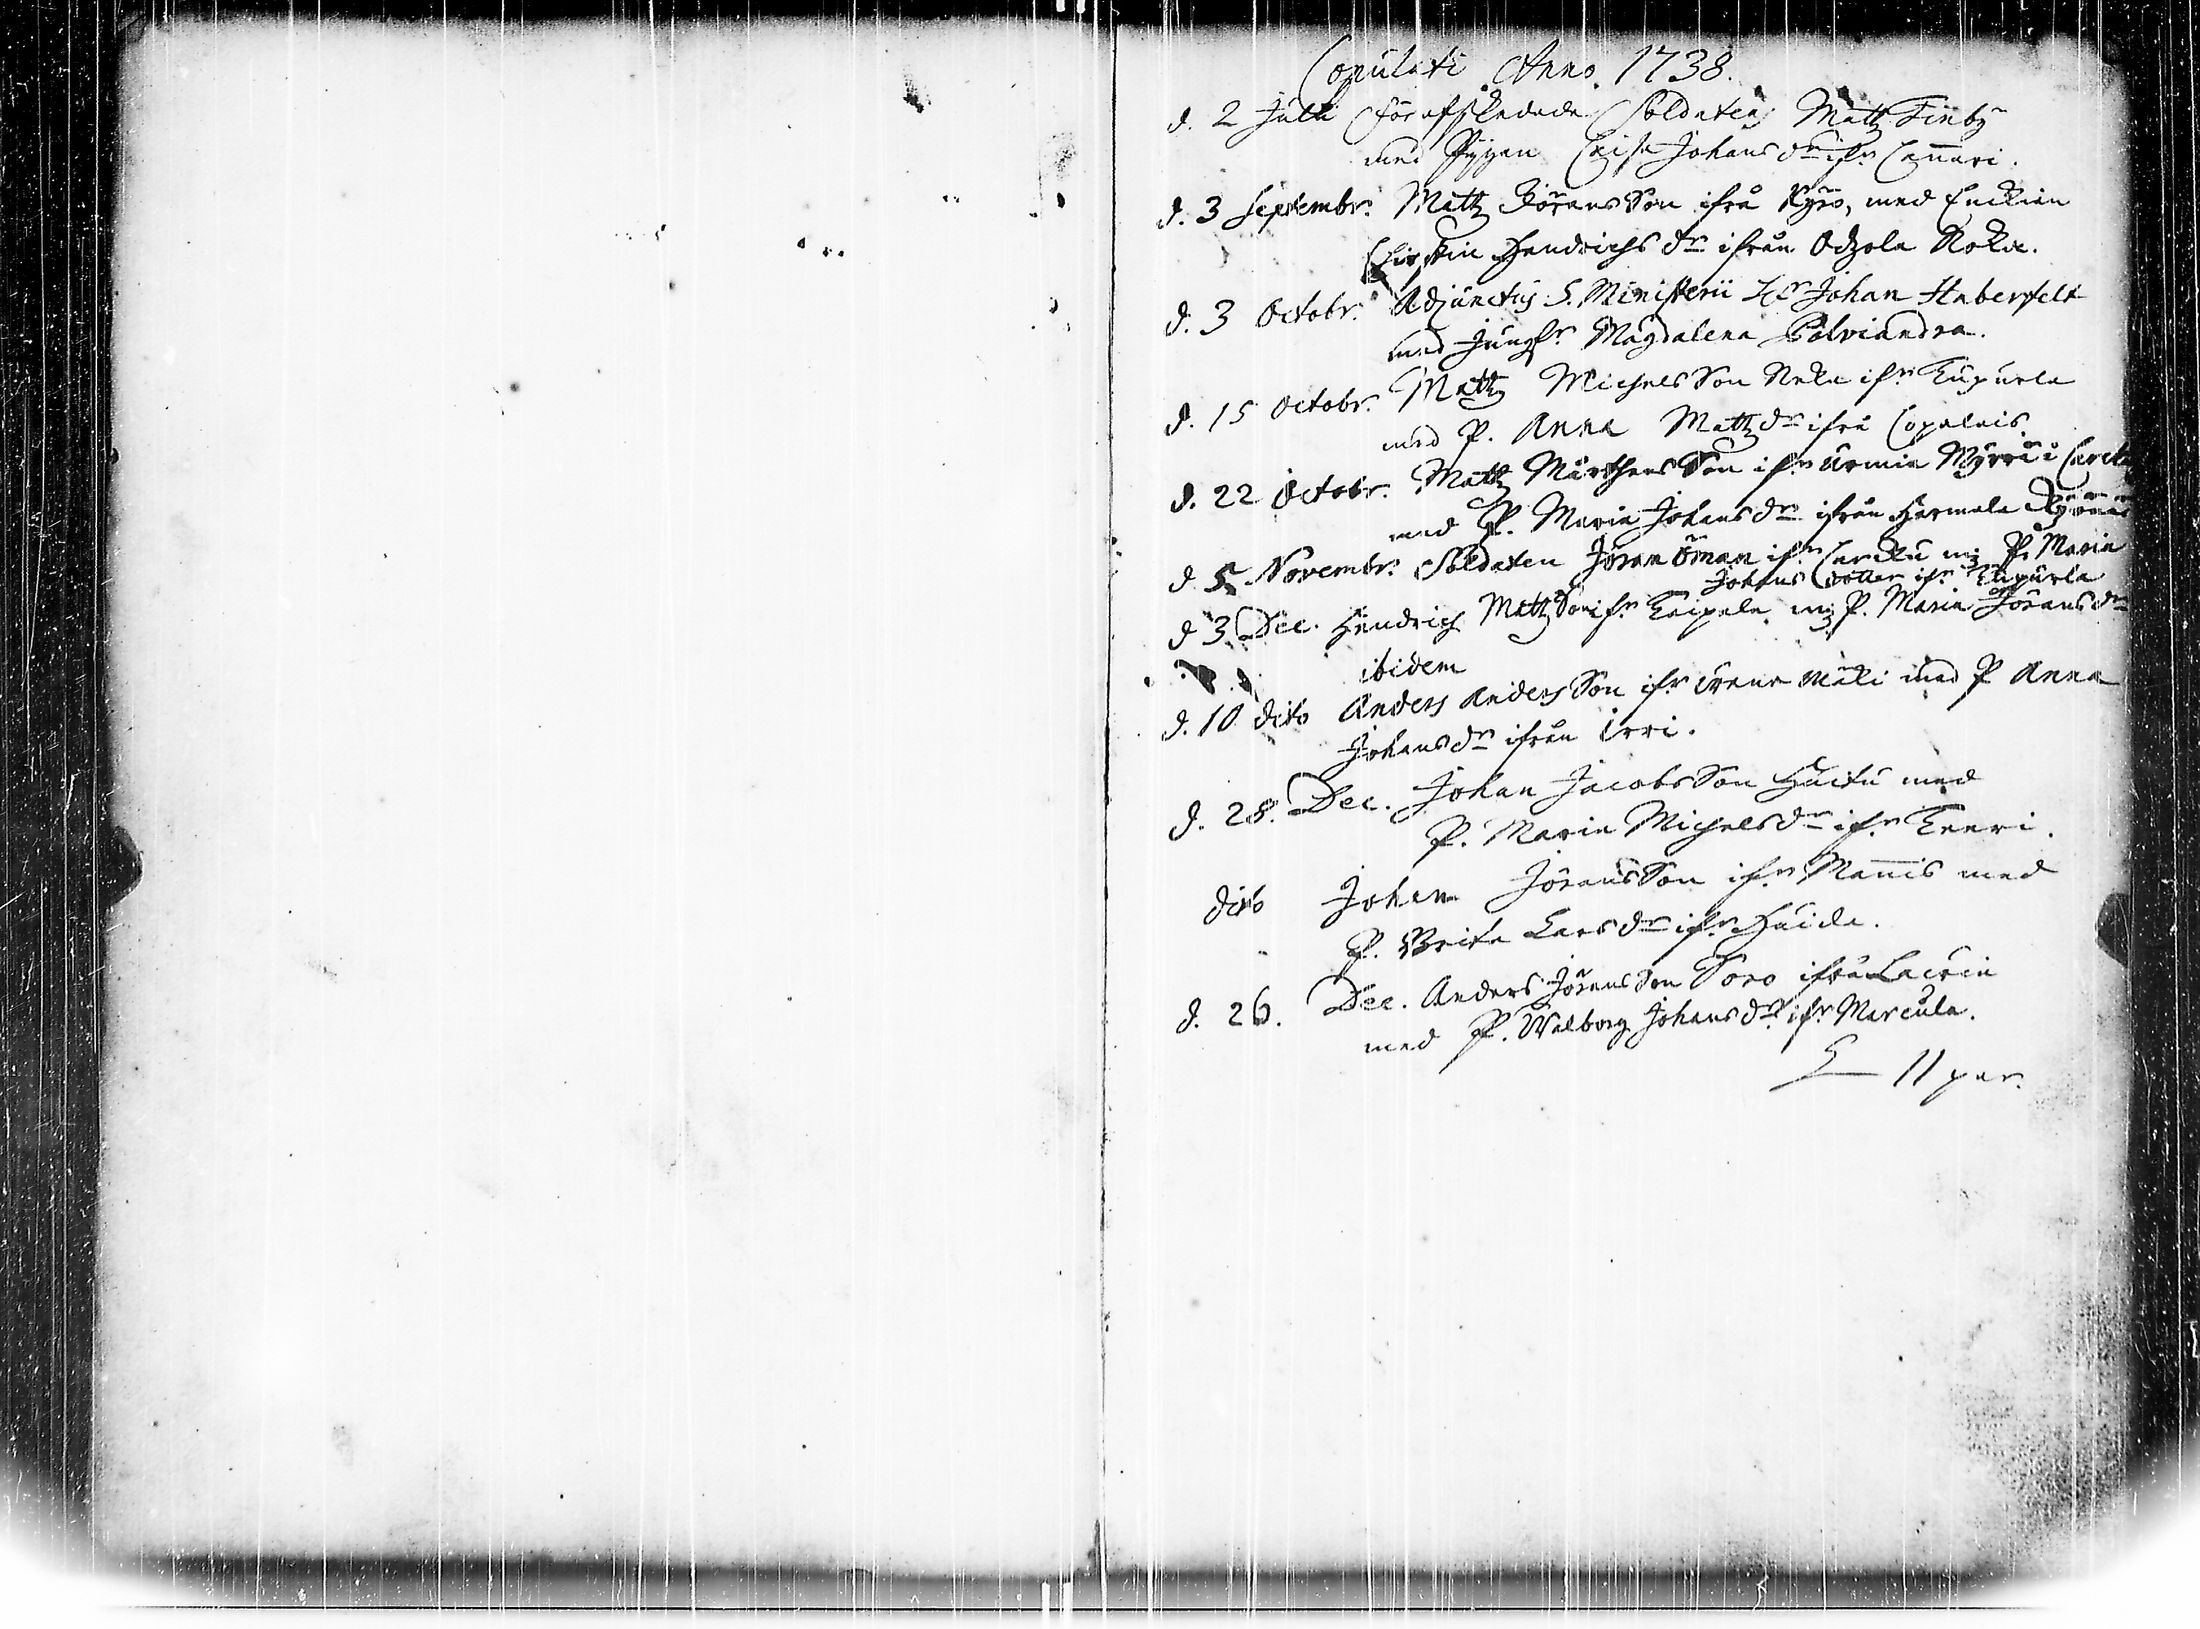 Copulati Anno 1738.
d. 2 Julii förafskedade Soldaten Matts Finby
med Pigan Caisa Johans dr ifr. Cannari.
d. 3 Septembr. Matts Jörans Son ifrå Kyro, med Enckian
Chirstin Hendrichs dr ifrån Odzola Noka.
d. 3 Octobr. Adjunctus S. Ministerii Hr Johan Haberfelt
med Jungfr. Magdalena Polviandra.
d. 15 Octobr. Matts Michels Son ifr. Kupurla
med P. Anna Matts dr ifrå Copelais.
d. 22 Octobr. Matts Mårthens Son ifr. Urmia Myrri i
med P. Maria Johans dr ifrån Harmala
d 5 Novembr. Soldaten Jöran Öman ifr. Carcku m. P. Maria
Johans dotter ifr. Kupurla
d 3 Dec. Hendrich Matts Son ifr. Kaipela m. P. Maria Jörans dr
ibidem
d. 10 dito Anders Anders Son ifr. mäki med P Anna
Johans dr ifrån Irri.
d. 28. Dec. Johan Jacobs Son Huitu med
P. Maria Michels dr ifr. Knuri.
dito Johan Jörans Son ifr. Mannis med
P. Brita Lars dr ifr. Huida.
d. 26. Dec. Anders Jörans Son Soro ifrå
med P. Walborg Johans dr ifr. Marcula.
S 11 par.